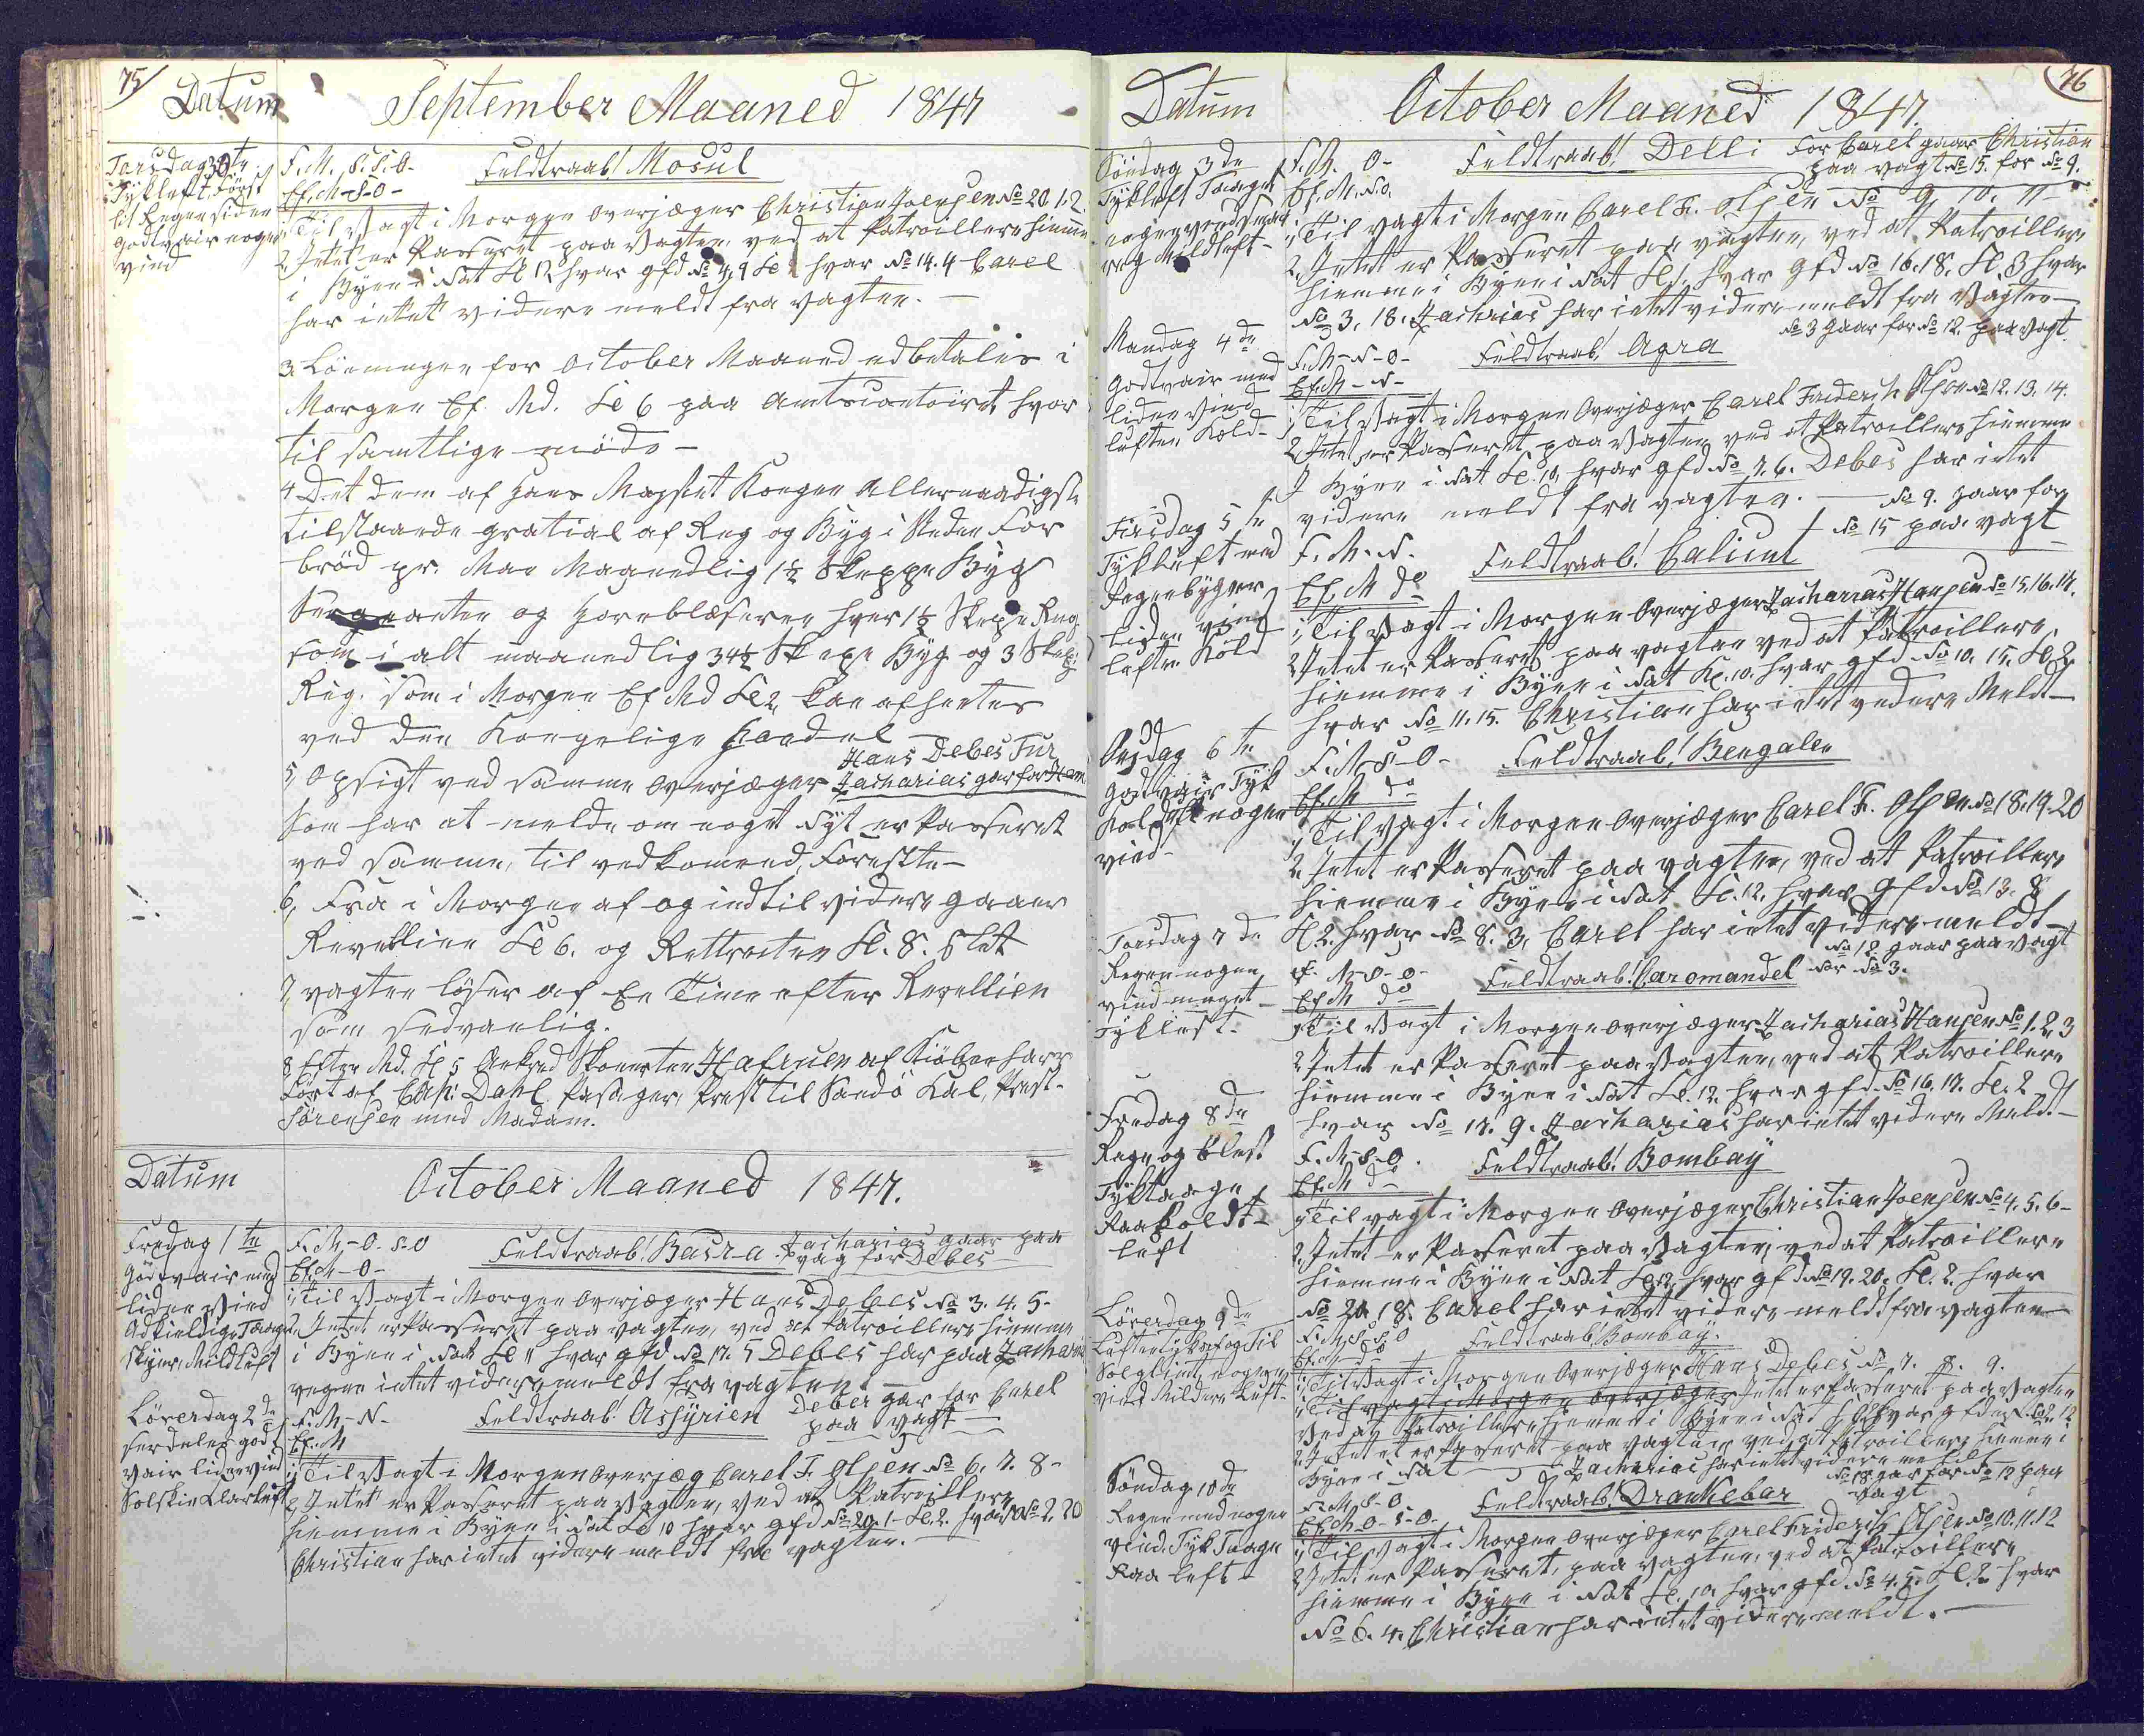 75/
Datum
September Maaned 1847
Torsdag 30te
Tykluft. Først
lit Regen siden
godtvair nogen
vind
F.M. S.S.O-
Ef.M-S.O-
Feldtraab! Mosul
1, Til Vagt i Morgen Overjæger Christian Joensen No 20. 1. 2.
2, Intet er Passeret paa Vagten, ved at Patroillere hiemme
i Byen i Nat Kl 12 hvar gfd No 4, 9 Kl hvar No 14. 4 Carel
har intet videre meldt fra Vagten.-
3 Lönningen for October Maaned udbetales i
Morgen Ef. Md. Kl 6 paa Amtscontoiret hvor
til samtlige möde-
4 Det dem af Hans Mayestet Kongen Allernaadigste
tilstaaede gratial af Rug og Byg i Steden For
bröd pr. Man Maanedlig 1½ Skeppe Byg
Sergeanten og Hornblæseren hver 1½ Skeppe Rug
som i alt maanedlig 34½ Skeppe Byg og 3 Skeppe
Rug. som i Morgen Ef Md Kl 2 kan afhentes
ved den Kongelige Handel
Hans Debes Tur
5, Opsigt ved samme Overjæger Zacharias gar for Ham
Som har at melde om noget Nyt er Passeret
ved samme, til vedkomend, Foresatte-
6, Fra i Morgen af og indtil videre gaaer
Revellien Kl 6. og Rettraiten Kl. 8. Slet
7, vagten löser af En Time efter Revellien
som sedvanlig.
8 Efter Md. Kl 5 Ankred Skonerten Hafruen af Kiöbenhavn
Fört af Capt: Dahl. Pasager, Prest til Sandö Kal, Prest-
Sörensen med Madam.
Datum
October Maaned 1847.
Fredag 1te
Godtvair med
liden Vind
Adskieldige Taage
skyer Mildluft
F.M-O. S.O
Ef.M-O-
Feldtraab! Basra
Zacharias gaar paa
vag for Debes-
1, Til Vagt i Morgen Overjæger Hans Debes No 3. 4. 5-
2, Intet er Passeret paa Vagten, ved at Patroillere hiemme
i Byen i Nat Kl 11 hvar gfd No 17. 5 Debes har paa Zacharias
vegne intet videre meldt fra Vagten.
Löverdag 2de
serdeles godt
vair liden vind
Solskin Klarluft
F.M-N-
Ef.M
Feldtraab! Assyrien
Debes gar for Carel
paa Vagt
1, Til Vagt i Morgen Overjæg Carel F. Olsen No 6. 7. 8-
2 Intet er Passeret paa Vagten, ved at Patroillere
hiemme i Byen i Nat Kl 10 hvar gfd No 20. 1- Kl. 2. hvar No 2. 20
Christian har intet videre meldt fra Vagten.-
76
Datum
October Maaned 1847.
Söndag 3de
Tykluft Taaget
nogen vind
og Mildluft-
F.M. O-
Ef.M. N.O.
Feldtraab! Delli
For Carel gaar Christian
paa Vagt No 15. for No 9.
1, Til Vagt i Morgen Carel F. Olsen No 9, 10. 11-
2, Intet er Passeret paa Vagten, ved at Patroillere
hiemme i Byen i Nat Kl 1. hvar gfd No 16. 18. Kl. 3 hvar
No 3. 18. Zacharias har intet videre meldt fra Vagten-
Mandag 4de
Godtvair med
liden Vind
luften Kold-
F.M-N-O-
Ef.M-N-
Feldtraab! Agra
No 3 gaar for No 12. paa Vagt
1, Til Vagt i Morgen Overjæger Carel Frederich Olsen No 12. 13. 14.
2 Intet er Passeret paa Vagten ved at Patroillere hiemme
i Byen i Nat Kl. 10. hvar gfd No 7. 6. Debes har intet
videre meldt fra Vagten.
Tirsdag 5te
Tykluft med
Regenbyger
Liden vind
luften Kold
F.M.N.
Ef.M do
Feldtraab! Calicut
No 9. gaar for
No 15 paa Vagt
1, Til Vagt i Morgen Overjæger Zacharias Hansen No 15. 16. 17.
2 Intet er Passeret paa Vagten ved at Patroillere,
hiemme i Byen i Nat Kl. 10. hvar gfd No 10. 15. Kl. 2
hvar No 11. 15. Christian har intet videre Meldt-
Onsdag 6te
Godtvair Tyk
Koldluft nogen
vind-
F.M-S-O-
Ef.M do
Feldtraab! Bengalen
1, Til Vagt i Morgen Overjæger Carel F. Olsen No 18. 19. 20
2, Intet er Passeret paa Vagten, ved at Patroillere
hiemme i Byen i Nat Kl. 12. hvar gfd No 13. 8
Kl 2. hvar No 8. 3, Carel har intet videre meldt-
Torsdag 7de
Regen nogen
vind meget
Tykluft.
F. M-S-O-
Ef M do
Feldtraab! Caromandel
No 12 gaar paa Vagt
for No 3.
1, Til Vagt i Morgen Overjæger Zacharias Hansen No 1. 2. 3
2 Intet er Passeret paa Vagten, ved at Patroillere
hiemme i Byen i Nat Kl. 12. hvar gfd No 16. 17. Kl. 2
hvar No 17. 9. Zacharias har intet videre Meldt-
Fredag 8de
Regn og blest
Tyktaage
Raakoldt-
luft
F.M-S-O.
Ef.M do
Feldtraab! Bombay
1, Til Vagt i Morgen Overjæger Christian Joensen No 4. 5. 6-
2, Intet er Passeret paa Vagten, ved at Patroillere
hiemme i Byen i Nat Kl 12 hvar gfd No 19. 20. Kl. 2. hvar
No 20. 18. Carel har intet videre meldt fra Vagten-
Löverdag 9de
Luften tyk af og til
Solglimt nogen
vind Mildere Luft-
F.M.S.S.O
Ef.M do
Feldtraab! Bombay.
1, Til Vagt i Morgen Overjæger Hans Debes No 7. 8. 9.
1, Til Vagt i Morgen Overjæger Intet er Passeret paa Vagten
ved at Patroillere hiemme i Byen i Nat
2 Intet er Passeret paa Vagten, ved at Patroillere hiemme i
Byen i Nat Zacharias har intet videre meldt
Söndag 10de
Regen med nogen
vind, Tyk Taage
Raa luft-
F.M.S-O
Ef.M-O-S-O-
Feldtraab! Drankebar
No 18 gar for No 12 paa
Vagt
1, Til Vagt i Morgen Overjæger Carel Friderich Olsen No 10. 11. 12
2 Intet er Passeret, paa Vagten, ved at Patroillere
hiemme i Byen i Nat Kl. 10 hvar gfd. No 4. 5. Kl. 2 hvar
No 6. 4. Christian har intet videre meldt.-